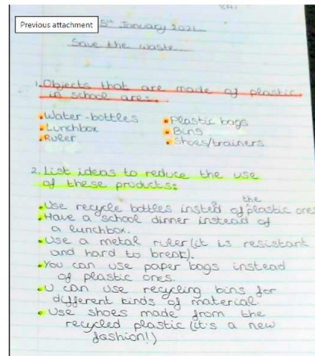 Previous attachment
5th January 2021
Save the waste
1. Objects that are made of plastic
in school are:
Water-bottles
Plastic bags
Lunchbox
Bins
Ruler
Shoes/trainers
2. List ideas to reduce the use
of these products:
Use recycle bottles insted of the plastic ones
Have a school dinner instead of
a lunchbox.
Use a metal ruler (it is resistant
and hard to break).
You can use paper bags instead
of plastic ones.
U can use recycling bins for
different kinds of material
Use shoes made from the
recycled plastic (it's a new
fashion!)